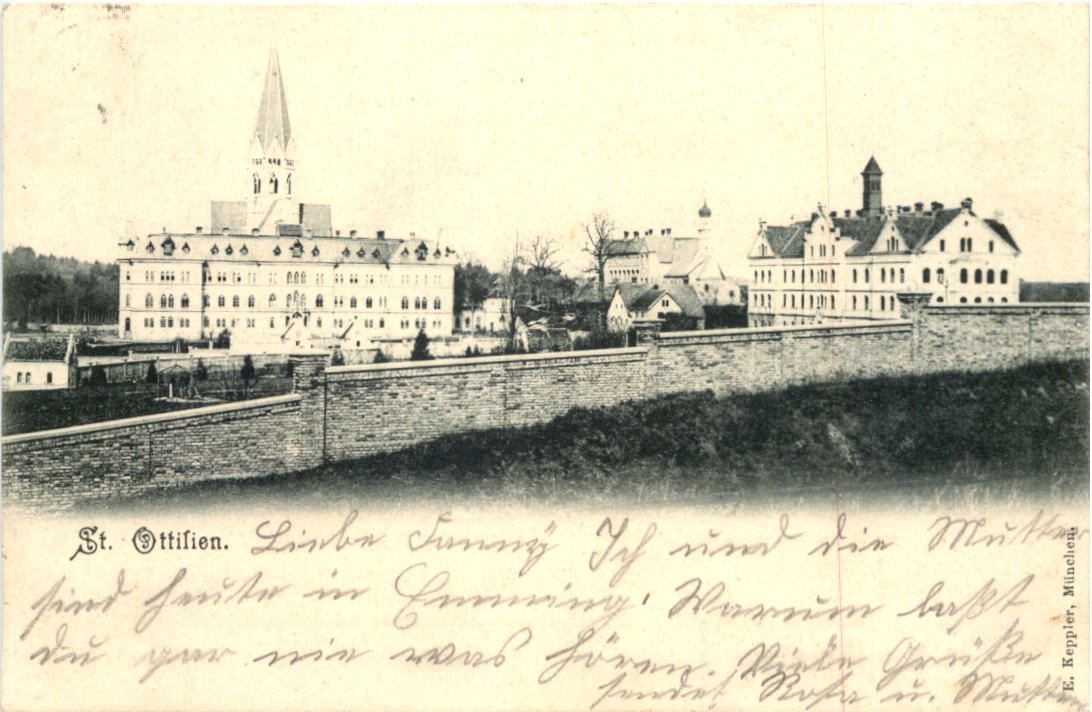 St. Ottilien.
Liebe Fanny Ich und die Mutter
sind heute in Emming. Warum baßt
du gar nie was hören. Viele Grüße
sendet Rosa u. Mutter
E. Keppler, München.